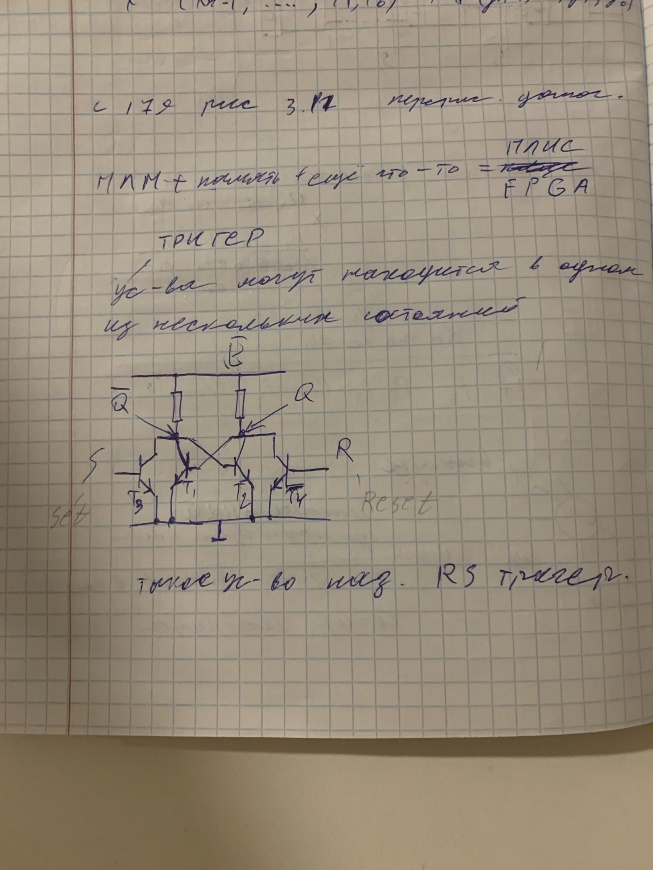 с 179 рис 3.11 перерис. домой.
ПЛМ + память + ещё что-то = ПЛИС
FPGA
ТРИГЕР
ус-ва могут находится в одном
из нескольких состояний
E
Q̅ Q
S R
T3 T1 T2 T4
Set Reset
такое ус-во наз. RS тригер.